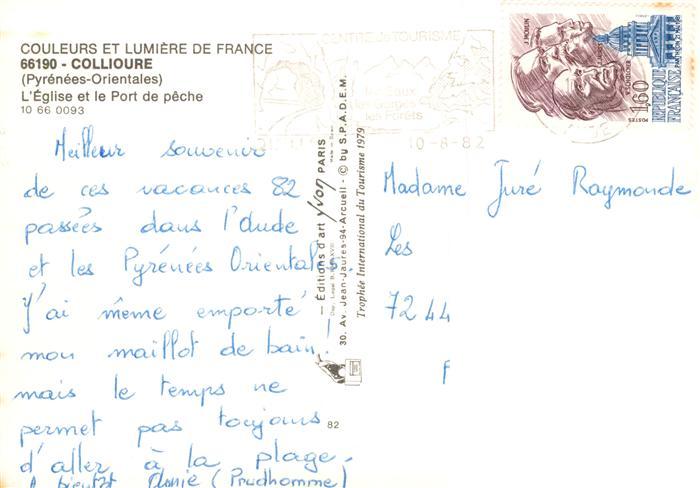 COULEURS ET LUMIÈRE DE FRANCE
66190 - COLLIOURE
(Pyrénées-Orientales)
L'Église et le Port de pêche
10 66 0093
Meilleur souvenir
de ces vacances 82
passées dans l'Aude
et les Pyrénées Orientales.
J'ai même emporté
mon maillot de bain!
mais le temps ne
permet pas toujours
d'aller à la plage.
A bientôt Annie (Prudhomme)
— Éditions d'art yvon PARIS
30. Av. Jean-Jaures-94-Arcueil - © by S.P.A.D.E.M.
Trophée International du Tourisme 1979
82
CENTRE de TOURISME
les Forêts
10-8-82
J. MOULIN
1,60
POSTES
RÉPUBLIQUE
FRANÇAISE
Madame Juré Raymonde
Les
7244
F